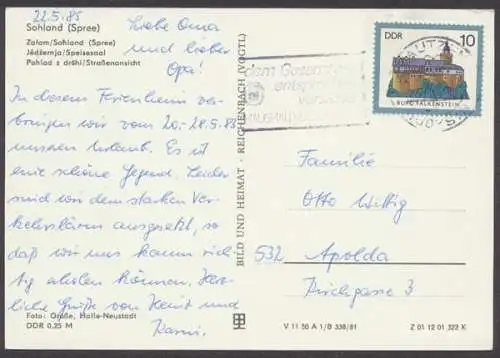 22.5.85
Sohland (Spree)
Załom/Sohland (Spree)
Jědźernja/Speisesaal
Pohlad z dróhi/Straßenansicht
Liebe Oma
und lieber
Opa!
In diesem Ferienheim ver-
bringen wir vom 20.-28.5.85
unseren Urlaub. Es ist
eine schöne Gegend. Leider
sind wir dem starken Ver-
kehrslärm ausgesetzt, so
daß wir uns kaum rich-
tig aholen können. Herz-
liche Grüße von Heinz und
Karin.
Foto: Große, Halle-Neustadt
DDR 0,25 M
BILD UND HEIMAT · REICHENBACH (VOGTL)
V 11 50 A 1/B 338/81
Z 01 12 01 322 K
DDR
10
BURG FALKENSTEIN
BAUTZEN
dem Gesamt
Familie
Otto Wittig
532 Apolda
Kirchgasse 3